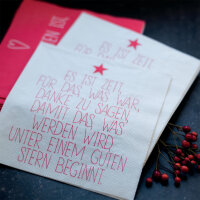 EN IST,
ES IST ZEIT,
ES IST ZEIT,
FÜR DAS, WAS WAR,
DANKE ZU SAGEN,
DAMIT DAS, WAS
WERDEN WIRD
UNTER EINEM GUTEN
STERN BEGINNT.